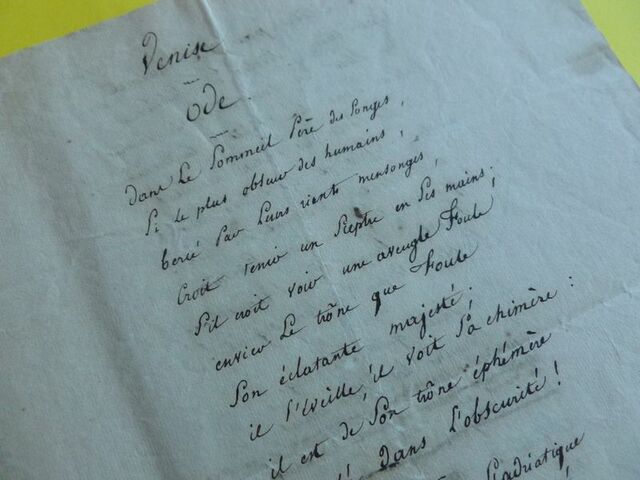 Venise
ode
dans Le Sommeil Père des Songes,
Si le plus obscur des humains,
bercé Par Leurs riants mensonges,
Croit tenir un Sceptre en Ses mains;
S'il croit voir une aveugle Foule
envier Le trône que Foule
Son éclatante majesté;
il S'éveille, il voit Sa chimère:
il est de Son trône éphémère
dans L'obscurité!
L'adriatique